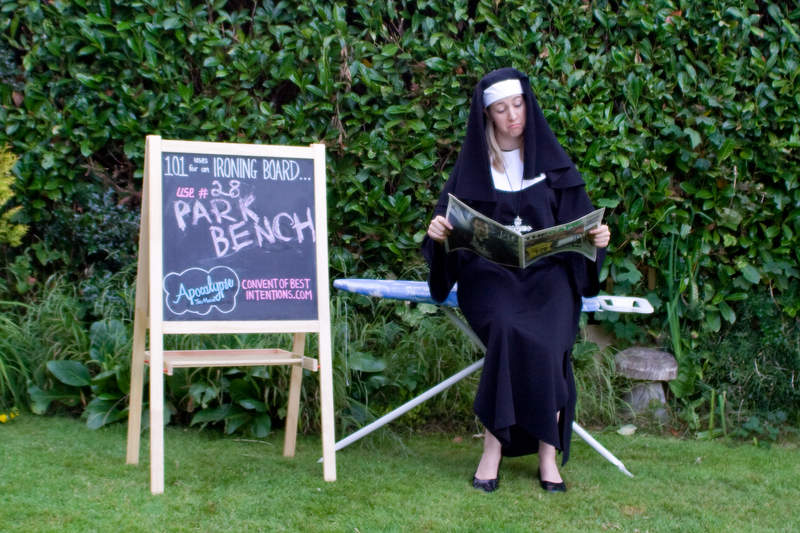 101 uses for an IRONING BOARD...
use # 28
PARK
BENCH
Apocalypse
The Musical
CONVENT OF BEST
INTENTIONS.COM